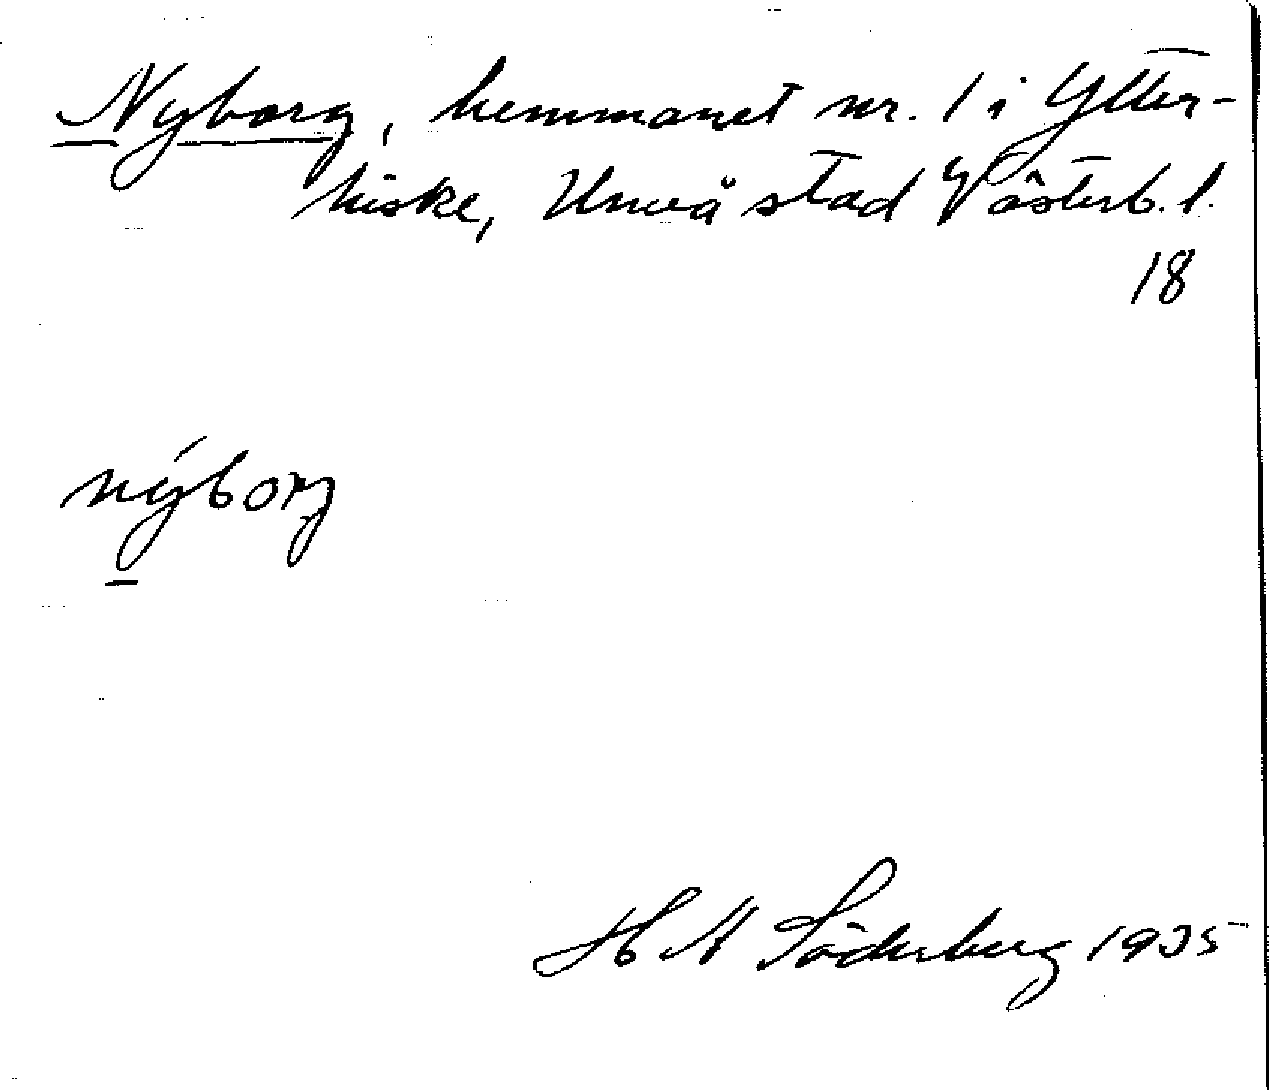 Nyborg, hemmanet nr. 1 i Ytter-
hiske, Umeå stad Västerb. l.
18
nýborg
H A Söderberg 1935